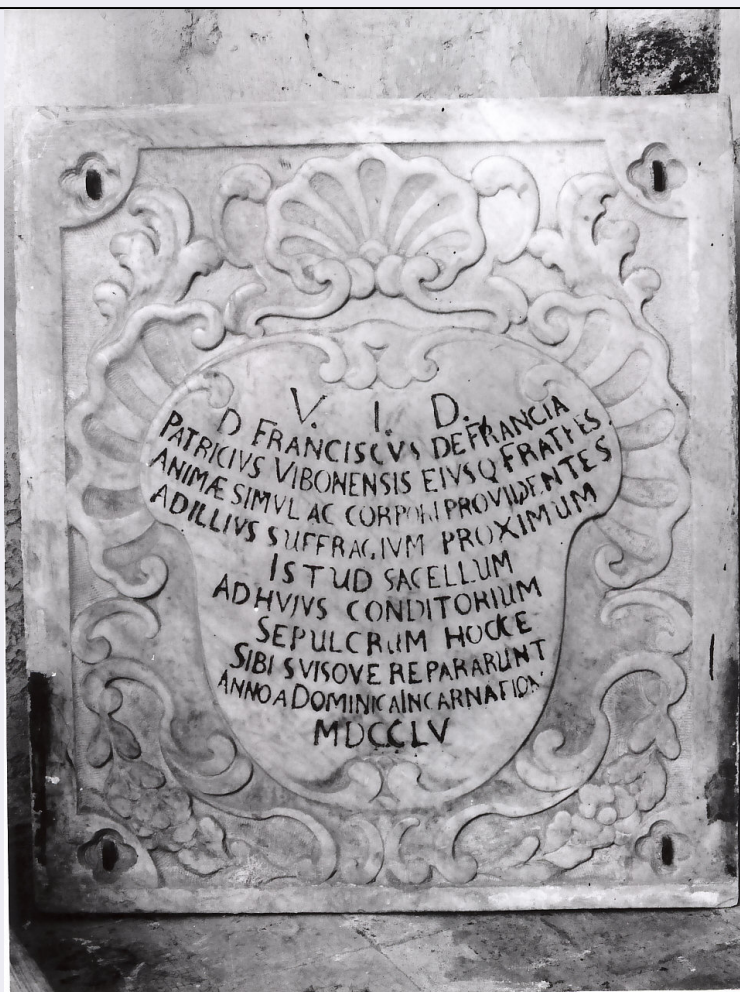 V. I. D.
D FRANCISCVS DE FRANCIA
PATRICIVS VIBONENSIS EIVSQ FRATRES
ANIMÆ SIMVL AC CORPORI PROVIDENTES
AD ILLIVS SUFFRAGIVM PROXIMUM
ISTUD SACELLUM
AD HVIVS CONDITORIUM
SEPULCRUM HOCCE
SIBI SVISQVE REPARARUNT
ANNO A DOMINICA INCARNATION
MDCCLV